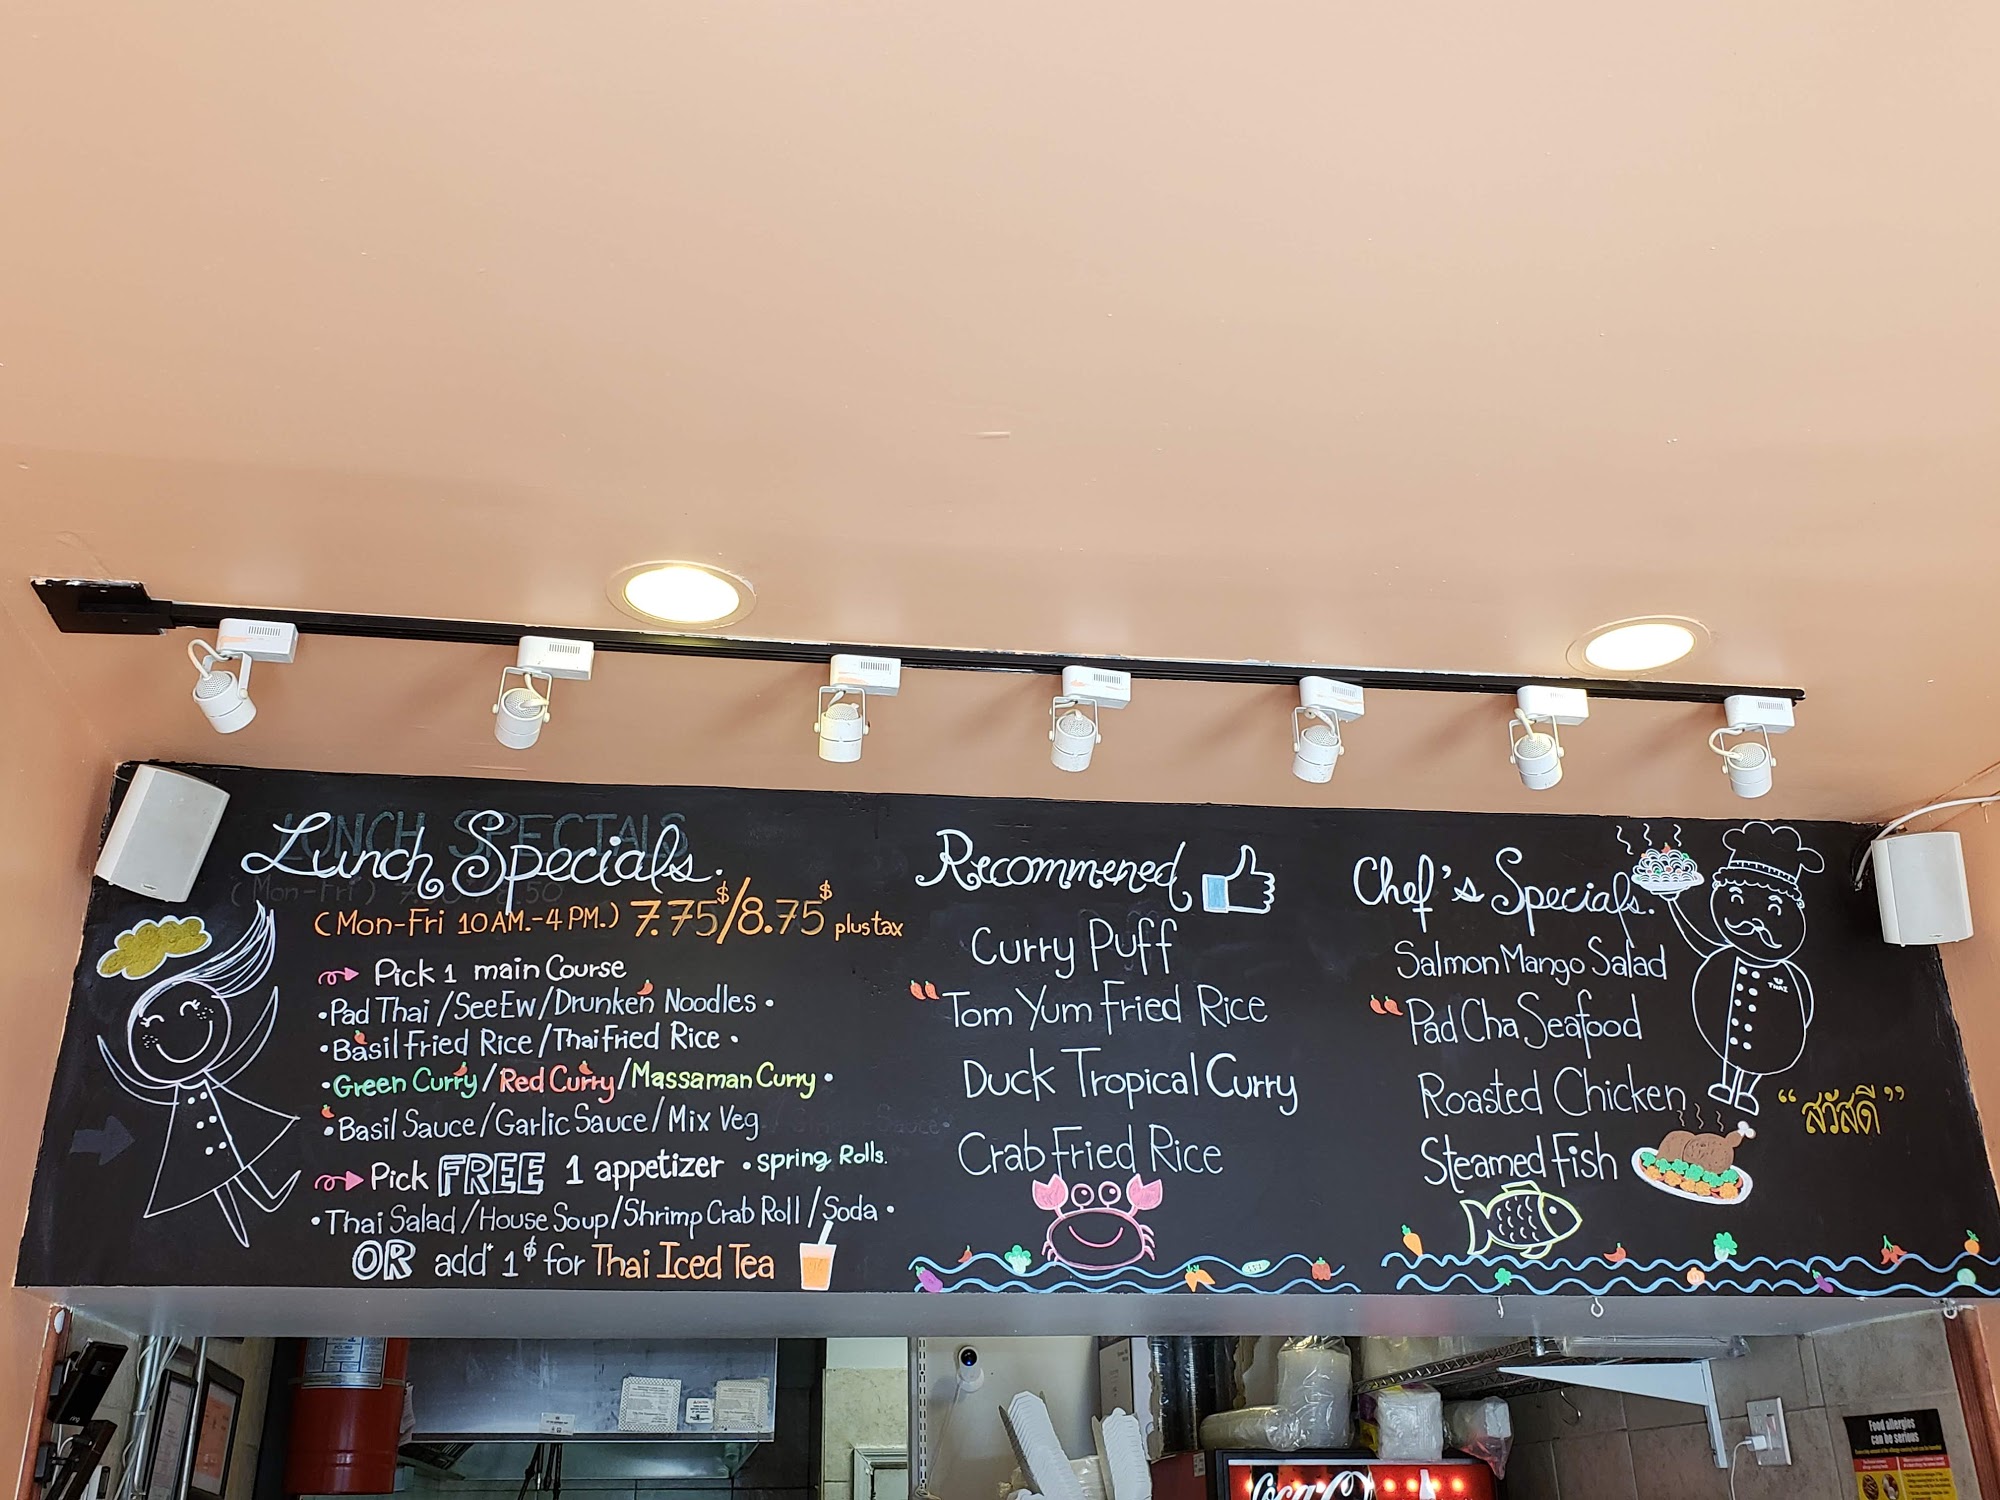 Lunch Specials.
(Mon-Fri 10 AM.-4 PM.) 7.75$/8.75$ plus tax
Pick 1 main Course
•Pad Thai/SeeEw/Drunken Noodles•
•Basil Fried Rice/Thai Fried Rice•
•Green Curry/Red Curry/Massaman Curry•
•Basil Sauce/Garlic Sauce/Mix Veg
Pick FREE 1 appetizer •spring Rolls.
•Thai Salad/House Soup/Shrimp Crab Roll/Soda•
OR add+ 1$ for Thai Iced Tea
Recommened
Curry Puff
Tom Yum Fried Rice
Duck Tropical Curry
Crab Fried Rice
Chef's Specials.
Salmon Mango Salad
Pad Cha Seafood
Roasted Chicken
Steamed Fish
THAI
"สวัสดี"
LUNCH SPECIALS
(Mon-Fri)
Coca-Co
Food allergies
can be serious